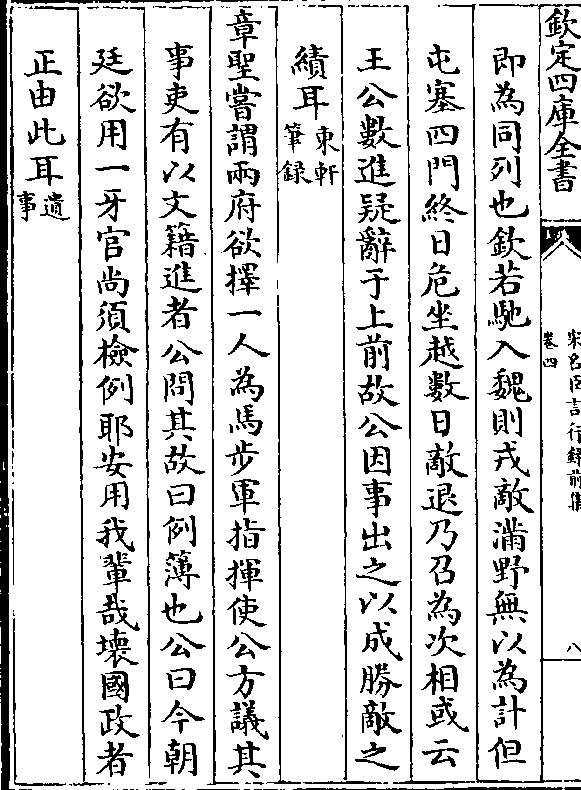 欽定四庫全書
宋名臣言行錄前集
卷四
八
即為同列也欽若馳入魏則戎敵滿野無以為計但
屯塞四門終日危坐越數日敵退乃召為次相或云
王公數進疑辭于上前故公因事出之以成勝敵之
績耳東軒
筆録
章聖嘗謂兩府欲擇一人為馬步軍指揮使公方議其
事吏有以文籍進者公問其故曰例簿也公曰今朝
廷欲用一牙官尚須檢例耶安用我輩哉壞國政者
正由此耳遺
事